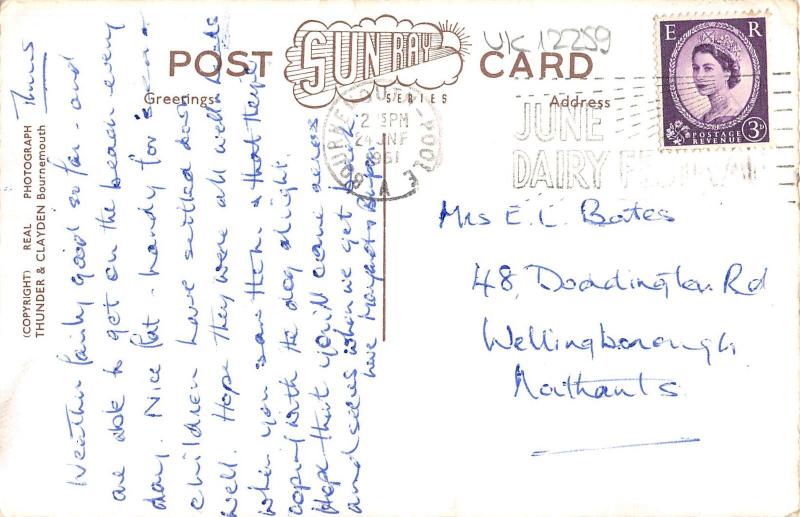 POST CARD
SUN RAY
SERIES
Greetings
Address
UK 12259
E R
POSTAGE
REVENUE
3D
BOURNEMOUTH - POOLE
2 PM
JNE
1961
A
JUNE
DAIRY FESTIVAL
(COPYRIGHT) REAL PHOTOGRAPH
THUNDER & CLAYDEN Bournemouth
Thurs
Weather fairly good so far - and
are able to get on the beach every
day. Nice flat - handy for sea -
children have settled down
well. Hope they were all well at
when you saw them & that they're
coping with the dog alright.
Hope that you'll come across
and see us when we get back
love Margaret &
Mrs E. C. Bates
48, Doddington Rd
Wellingborough
Northants.